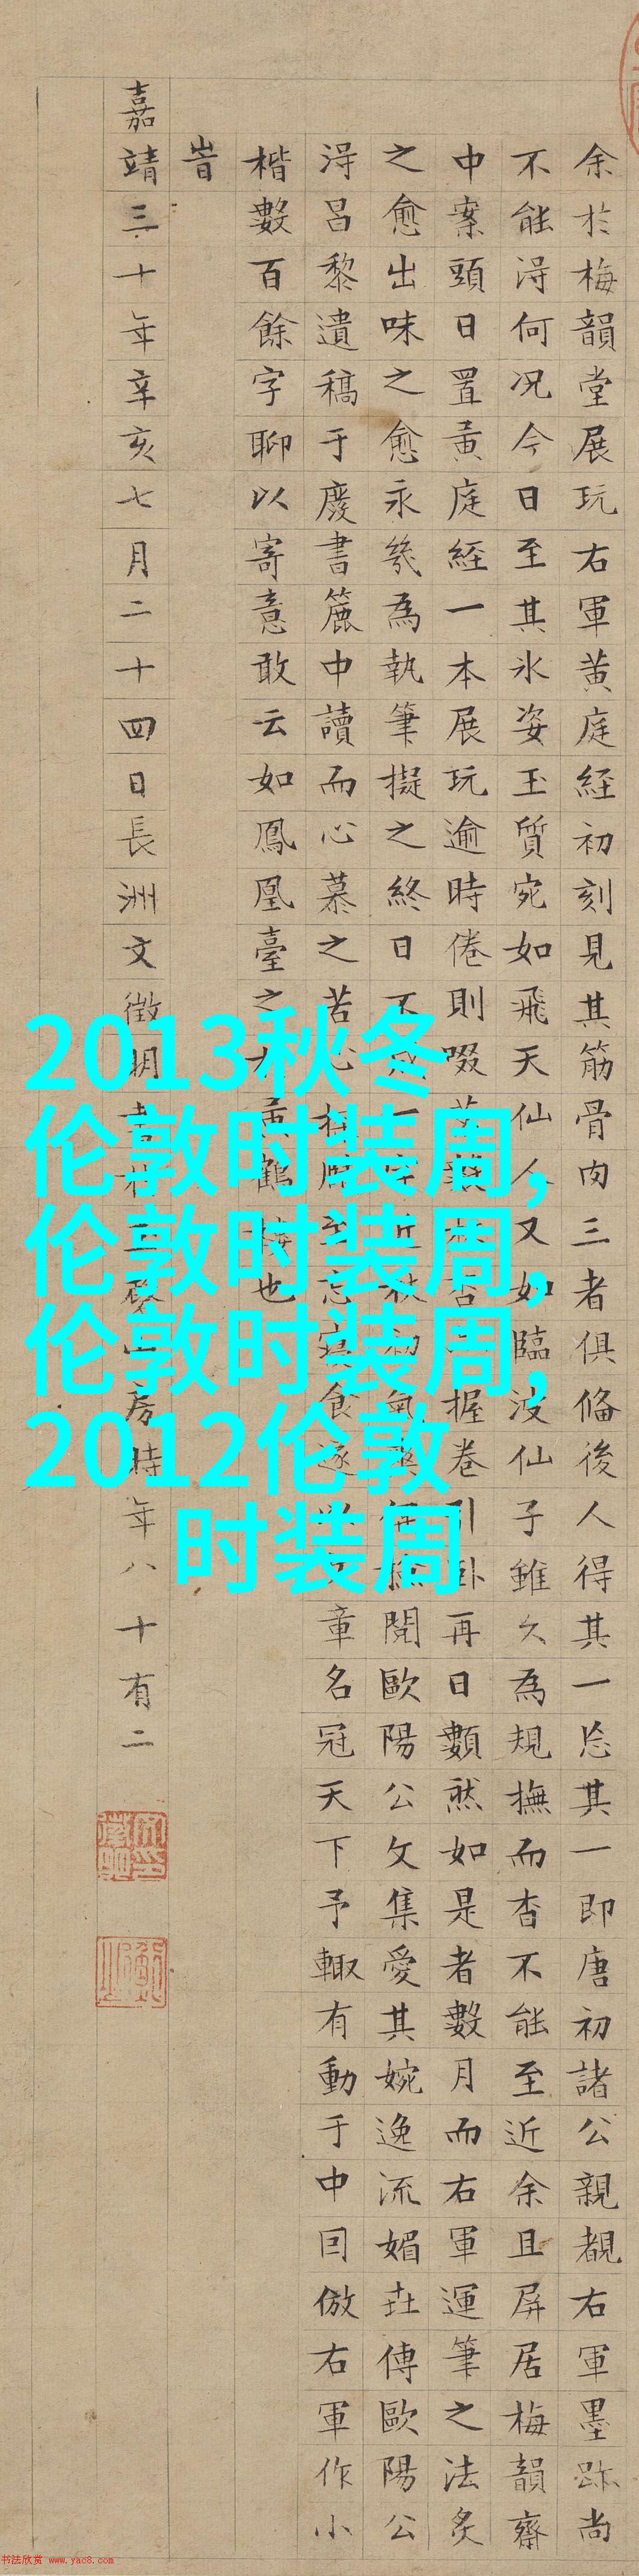 余於梅韻堂展玩右軍黄庭経初刻見其筋骨肉三者俱俻後人得其一忘其一即唐初諸公親覩右軍墨跡尚
不能淂何况今日至其氷姿玉質宛如飛天仙人又如臨波仙子雖久為規撫而杳不能至近余且屏居梅韻齋
中案頭日置黄庭経一本展玩逾時倦則啜握卷引卧再日數然如是者數月而右軍運筆之法炙
之愈出味之愈永幾為執筆擬之終日不一近秋初氣閱歐陽公文集愛其婉逸流媚世傳歐陽公
淂吕黎遺稿于廢書簏中讀而心慕之苦心至忘寢食遂章名冠天下予輙有動于中囙倣右軍作小
楷數百餘字聊以寄意敢云如鳳凰臺之黄鶴樓也
旹
嘉靖三十年辛亥七月二十四日長洲文徵明書於玉磬山房時年八十有二
2013秋冬
伦敦时装周,
伦敦时装周,
伦敦时装周,
2012伦敦
时装周
书法欣赏 www.yac8.com